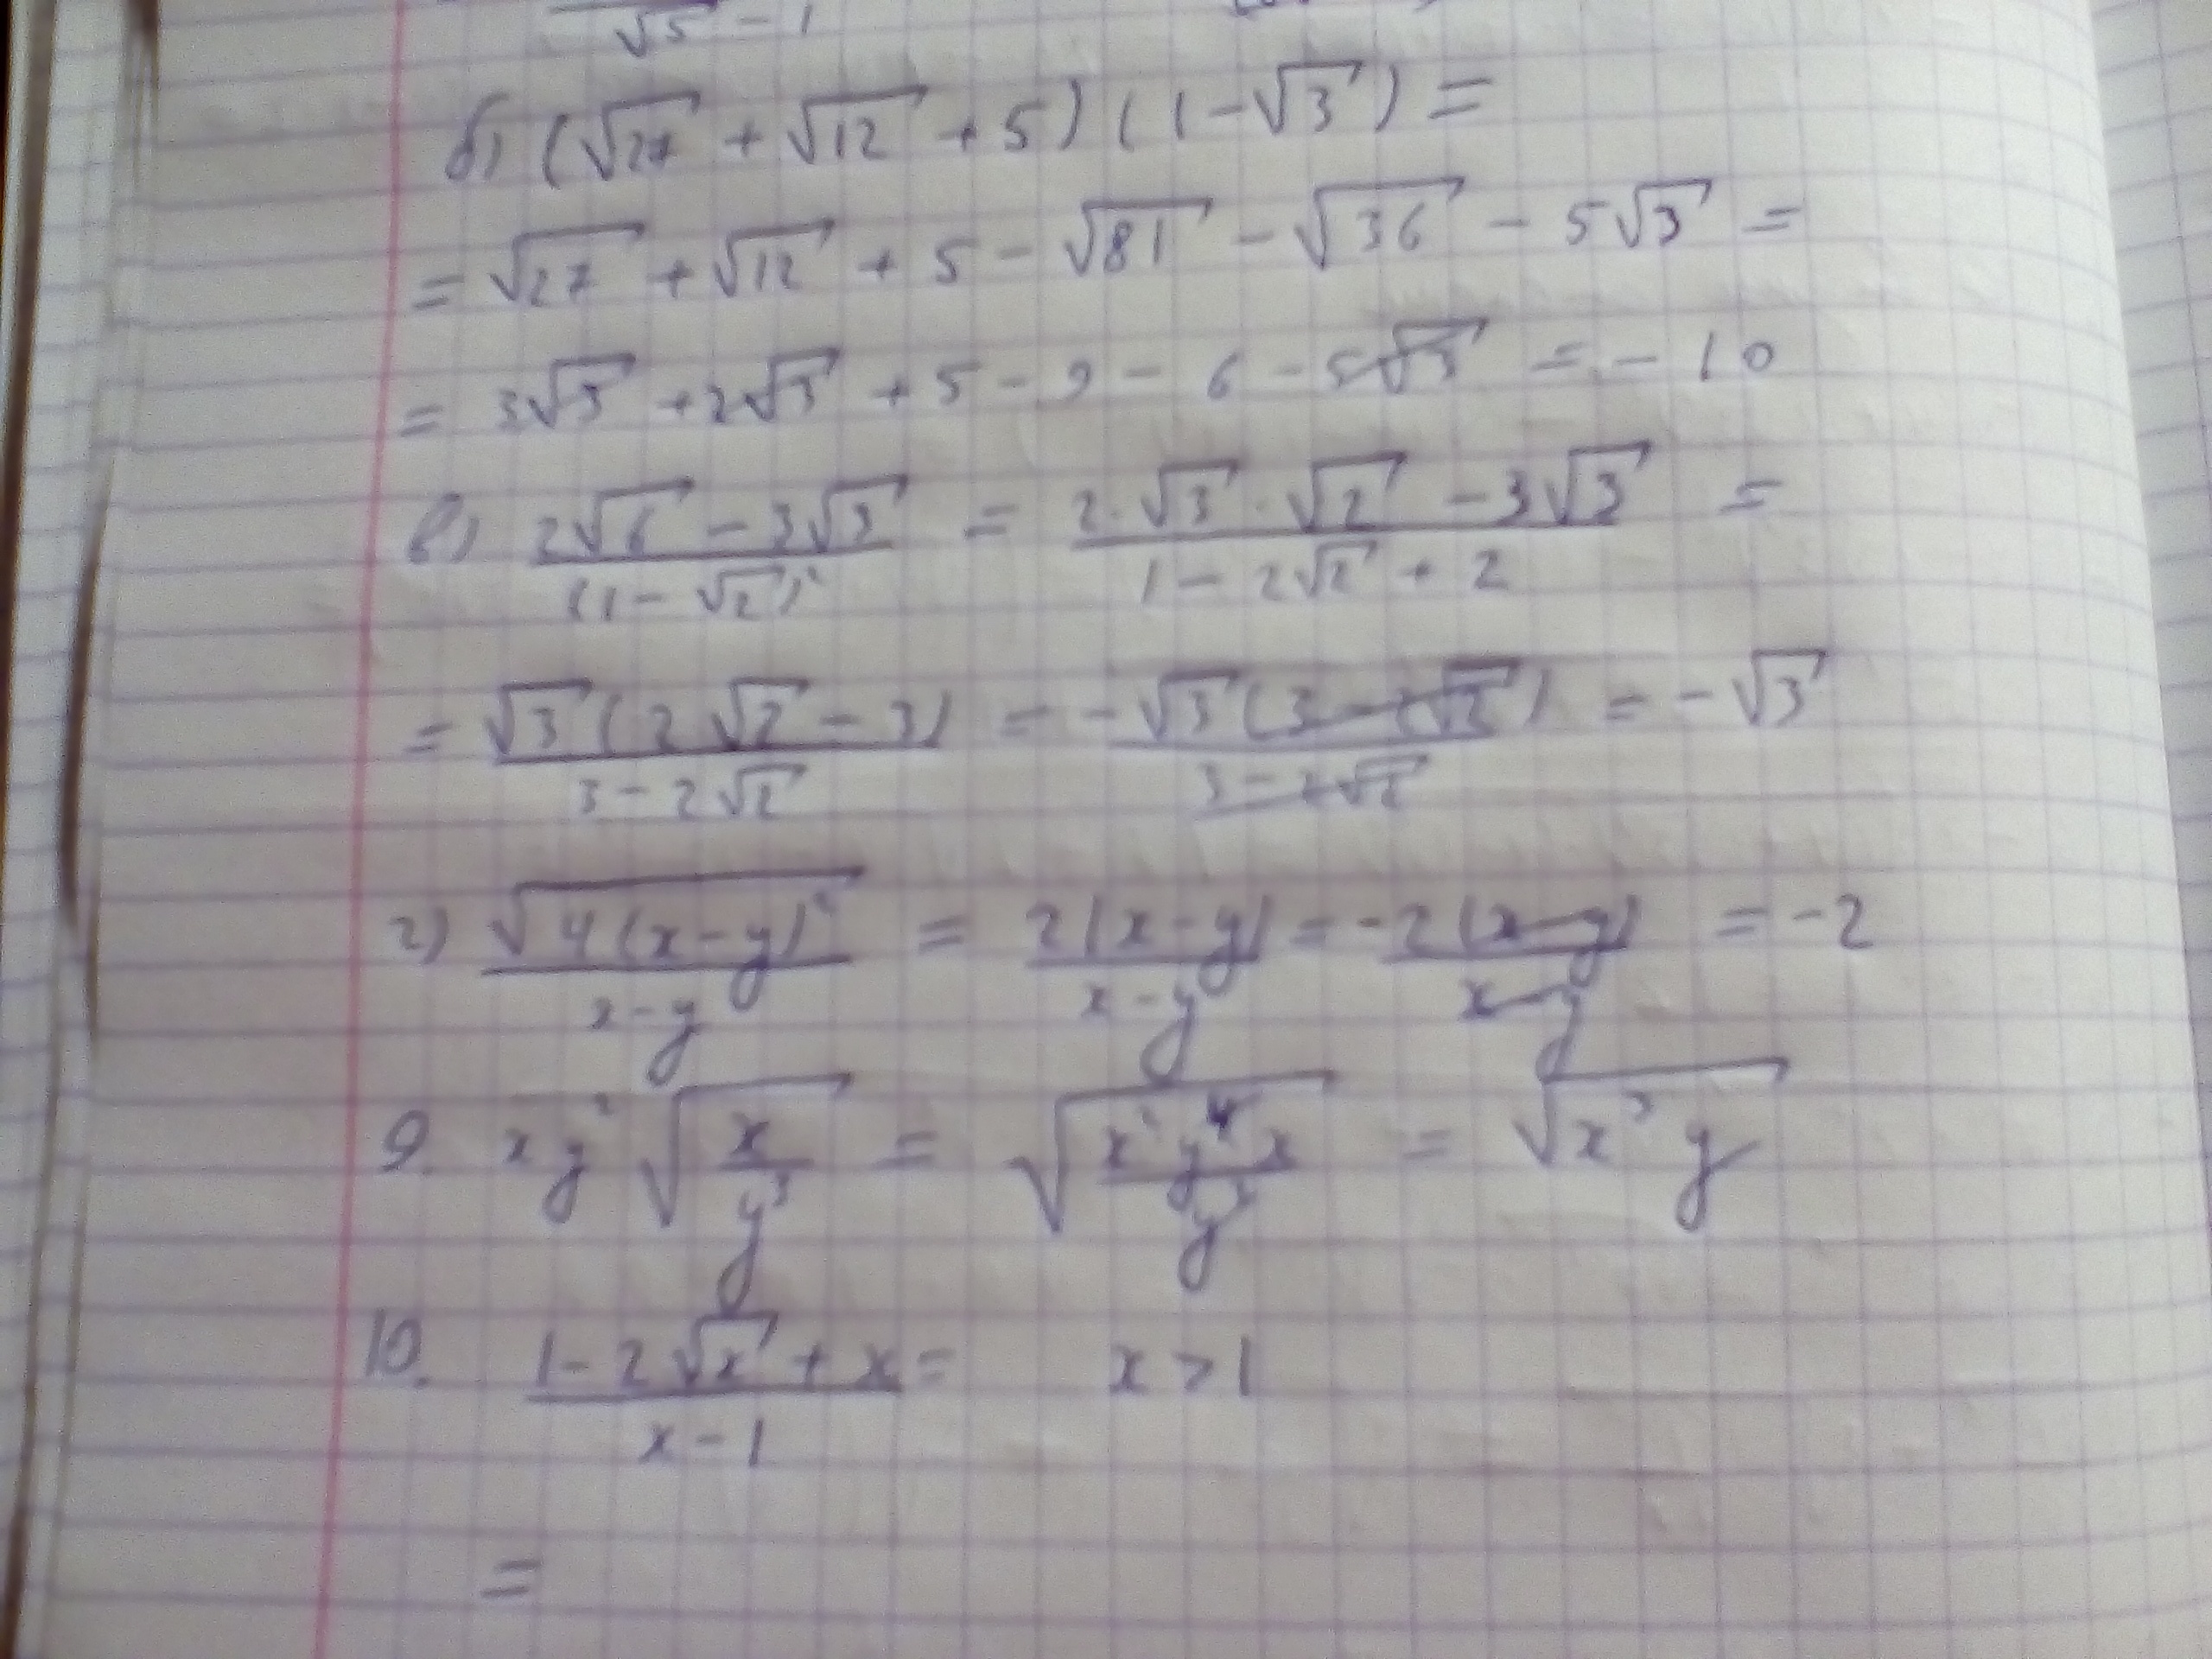 √5 - 1
б) (√27 + √12 + 5) (1 - √3) =
= √27 + √12 + 5 - √81 - √36 - 5√3 =
= 3√3 + 2√3 + 5 - 9 - 6 - 5√3 = - 10
в) (2√6 - 3√3)/((1 - √2)²) = (2·√3·√2 - 3√3)/(1 - 2√2 + 2) =
= (√3(2√2 - 3))/(3 - 2√2) = (-√3(3 - 2√2))/(3 - 2√2) = -√3
г) √(4(x-y)²)/(x-y) = 2(x-y)/(x-y) = -2(x-y)/(x-y) = -2
9. xy² √(x/y³) = √(x²y⁴x/y³) = √(x³y)
10. (1 - 2√x + x)/(x - 1) = x > 1
=